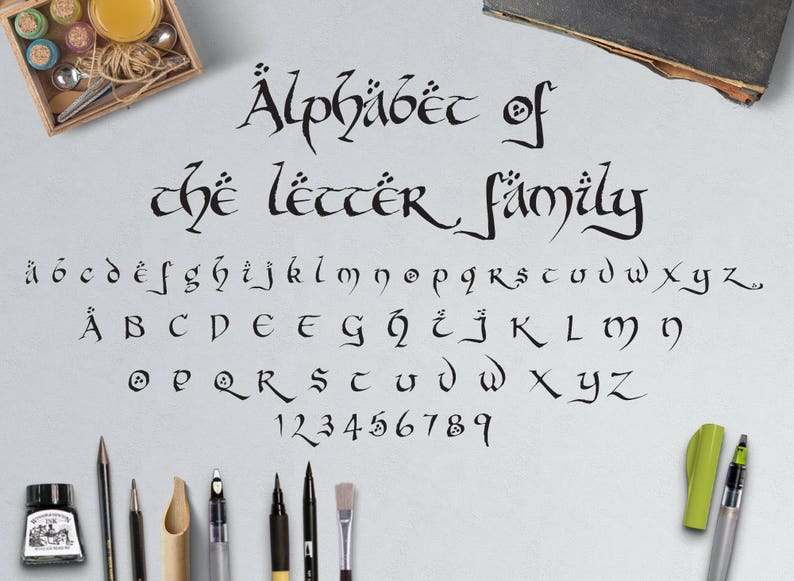 Alphabet of
the letter family
a b c d e f g h i j k l m n o p q r s t u v w x y z
A B C D E F G H I J K L M N
O P Q R S T U V W X Y Z
123456789
WINSOR & NEWTON
INK